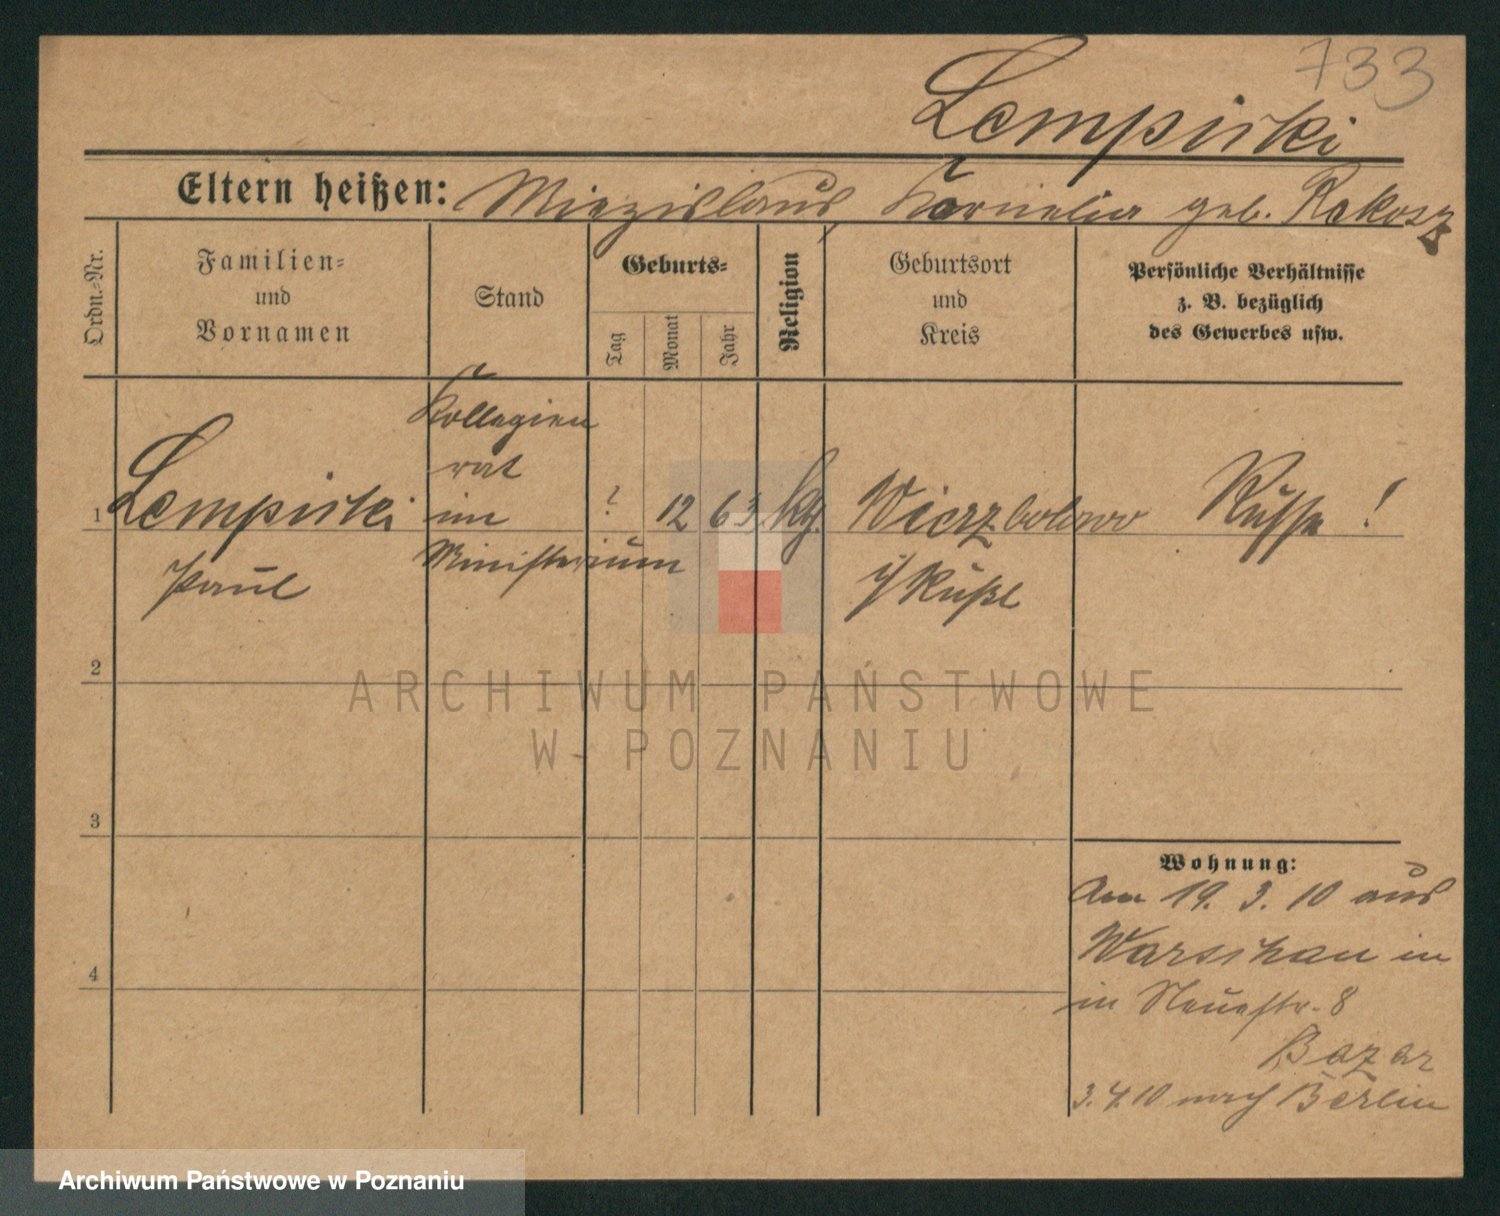 733
Lempicki
Eltern heißen: Miezislaus, Kornelia geb. Rakosz
Ordn.-Nr.
Familien-
und
Vornamen
Stand
Geburts-
Tag
Monat
Jahr
Religion
Geburtsort
und
Kreis
Persönliche Verhältnisse
z. B. bezüglich
des Gewerbes usw.
1
Lempicki
Paul
Kollegien
rat
im
Ministerium
?
12
63
kg.
Wierzbolowo
i/ Rußl
Russe !
2
3
4
Wohnung:
Am 19. 3. 10 aus
Warschau in
in Neuestr. 8
Bazar
3. 4. 10 nach Berlin
ARCHIWUM PAŃSTWOWE
W POZNANIU
Archiwum Państwowe w Poznaniu